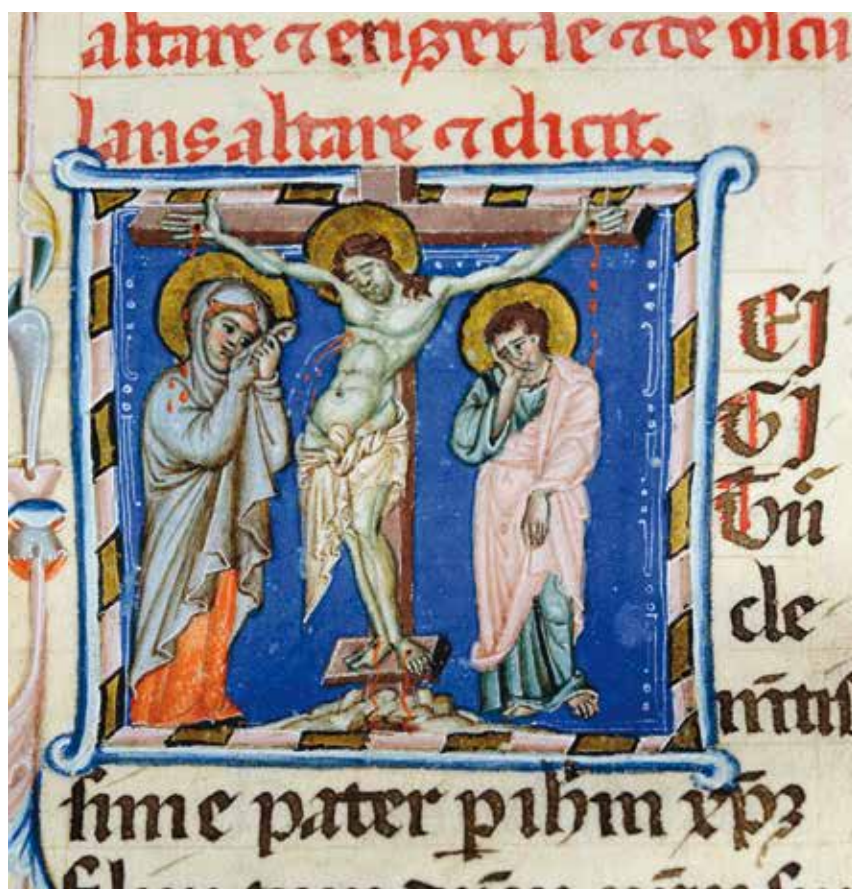 altare ⁊ eriget se ⁊ deoscu
lans altare ⁊ dicit.
EI
GI
Tur̄
cle
m̄tis
sime pater ꝑ ih̄m xp̄ꝫ